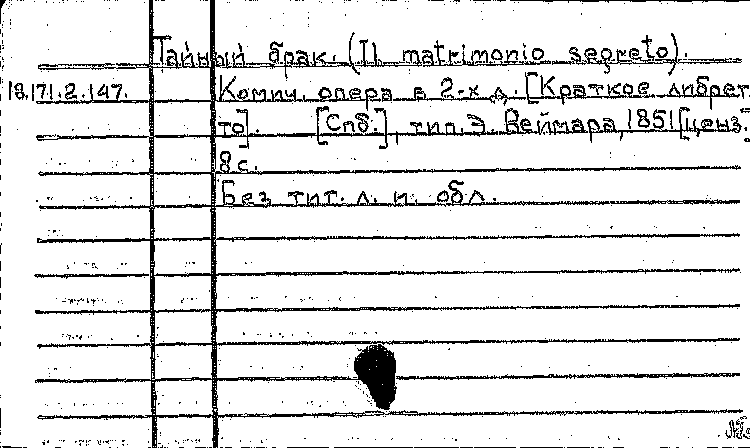 Тайный брак. (Il matrimonio segreto).
18.171.2.147. Комич. опера в 2-х д. [Краткое либрет
то]. [Спб.], тип. Э. Веймара, 1851 [ценз.]
8 с.
Без тит. л. и обл.